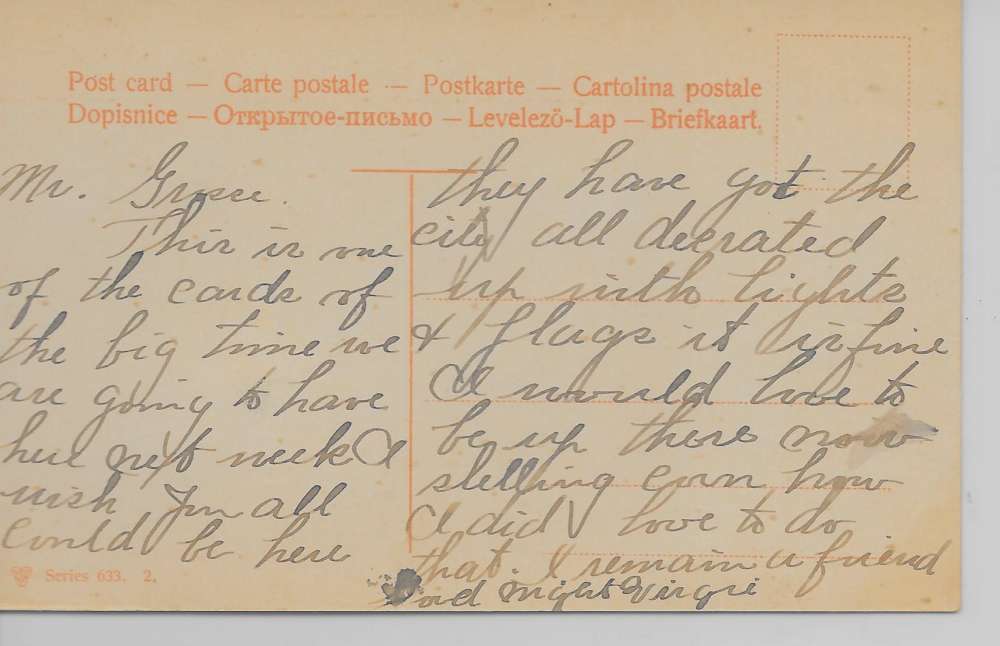 Post card — Carte postale — Postkarte — Cartolina postale
Dopisnice — Открытое-письмо — Levelező-Lap — Briefkaart.
Mr.
This is one
of the cards of
the big time we
are going to have
here next week I
wish you all
could be here
they have got the
city all decrated
up with lights
& flags it is fine
I would love to
be up there now
shelling corn how
I did love to do
that. I remain a friend
night Virgie
Series 633. 2.